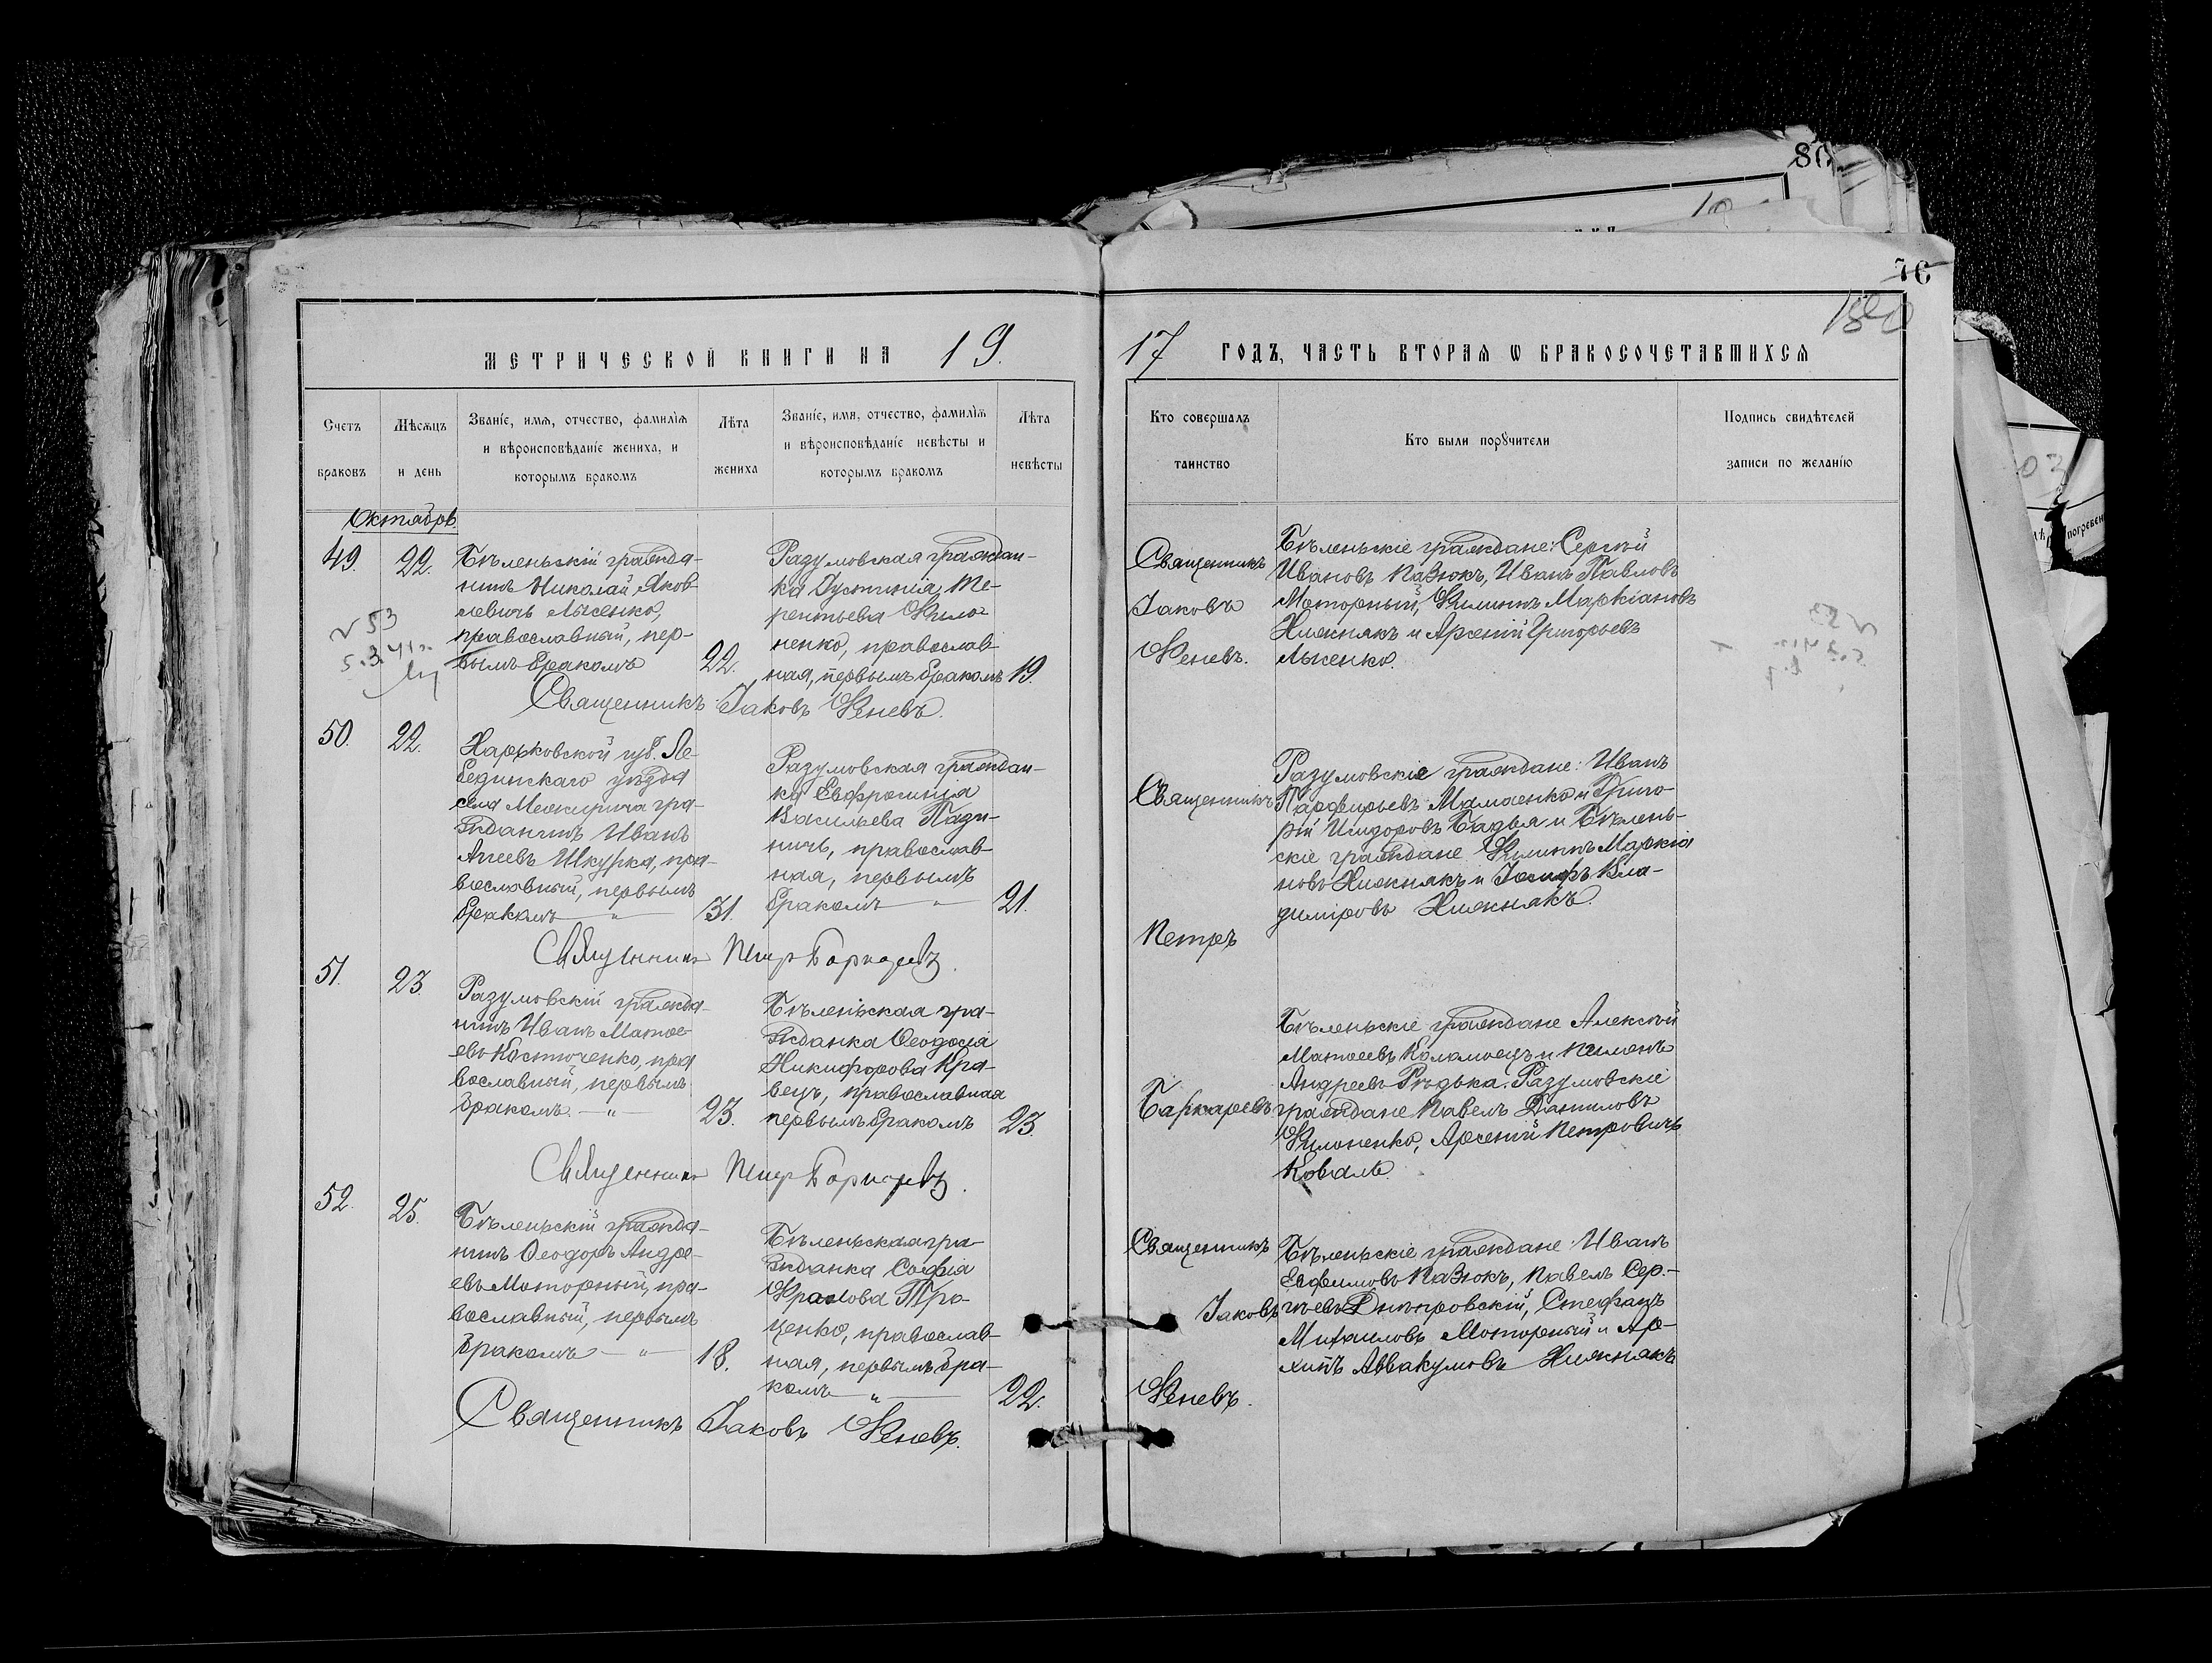 80
76
МЕТРИЧЕСКОЙ КНИГИ НА 19.
17 ГОДЪ, ЧАСТЬ ВТОРАЯ Ѡ БРАКОСОЧЕТАВШИХСЯ
Счетъ
браковъ
Мѣсяцъ
и день
Званіе, имя, отчество, фамилія
и вѣроисповѣданіе жениха, и
которымъ бракомъ
Лѣта
жениха
Званіе, имя, отчество, фамилія
и вѣроисповѣданіе невѣсты и
которымъ бракомъ
Лѣта
невѣсты
Кто совершалъ
таинство
Кто были поручители
Подпись свидѣтелей
записи по желанію
Октябрь
49.
22.
Бѣленьскій гражда-
нинъ Николай Яков-
левичъ Лысенко,
православный, пер-
вымъ бракомъ
22.
Разумовская граждан-
ка Іустинія Те-
рентьева Фило-
ненко, православ-
ная, первымъ бракомъ
19.
Священникъ
Іаковъ
Феневъ.
Бѣленьскіе граждане: Сергѣй
Ивановъ Пазюкъ, Иванъ Павловъ
Моторный, Филиппъ Маркіановъ
Нижнякъ и Арсеній Григорьевъ
Лысенко.
№ 53
Священникъ Іаковъ Феневъ.
50.
22.
Харьковской губ. Ле-
бединскаго уѣзда
села Межирича гра-
жданинъ Иванъ
Шкурка, пра-
вославный, первымъ
бракомъ — " —
31.
Разумовская граждан-
ка Евфросинія
Васильева
православ-
ная, первымъ
бракомъ — " —
21.
Священникъ
Петръ
Разумовскіе граждане: Иванъ
Парфирьевъ Мамаенко и Григо-
рій Исидоровъ Бадья и Бѣлень-
скіе граждане Филиппъ Маркіа
новъ Нижнякъ и Іосифъ Вла-
диміровъ Нижнякъ.
Священникъ Петръ
51.
23.
Разумовскій гражда-
нинъ Иванъ Матѳе-
евъ Костюченко, пра
вославный, первымъ
бракомъ. — " —
23.
Бѣленьская гра-
жданка Ѳеодосія
Никифорова Кра-
вецъ, православная
первымъ бракомъ
23.
Бѣленьскіе граждане Алексѣй
Матѳеевъ Коломоецъ и Пименъ
Андреевъ Рѣдька. Разумовскіе
граждане Павелъ Даниловъ
Филоненко, Арсеній Петровичъ
Коваль.
Священникъ Петръ
52.
25.
Бѣленьскій гражда-
нинъ Ѳеодоръ Андре-
евъ Моторный, пра-
вославный, первымъ
бракомъ — " —
18.
Бѣленьская гра-
жданка Софія
Тро-
ценко, православ-
ная, первымъ бра-
комъ — " —
22.
Священникъ
Іаковъ
Феневъ.
Бѣленьскіе граждане: Иванъ
Евфимовъ Пазюкъ, Павелъ Сер-
гѣевъ Днѣпровскій, Стефанъ
Михаиловъ Моторный и Ар-
хипъ Аввакумовъ Нижнякъ
Священникъ Іаковъ Феневъ.